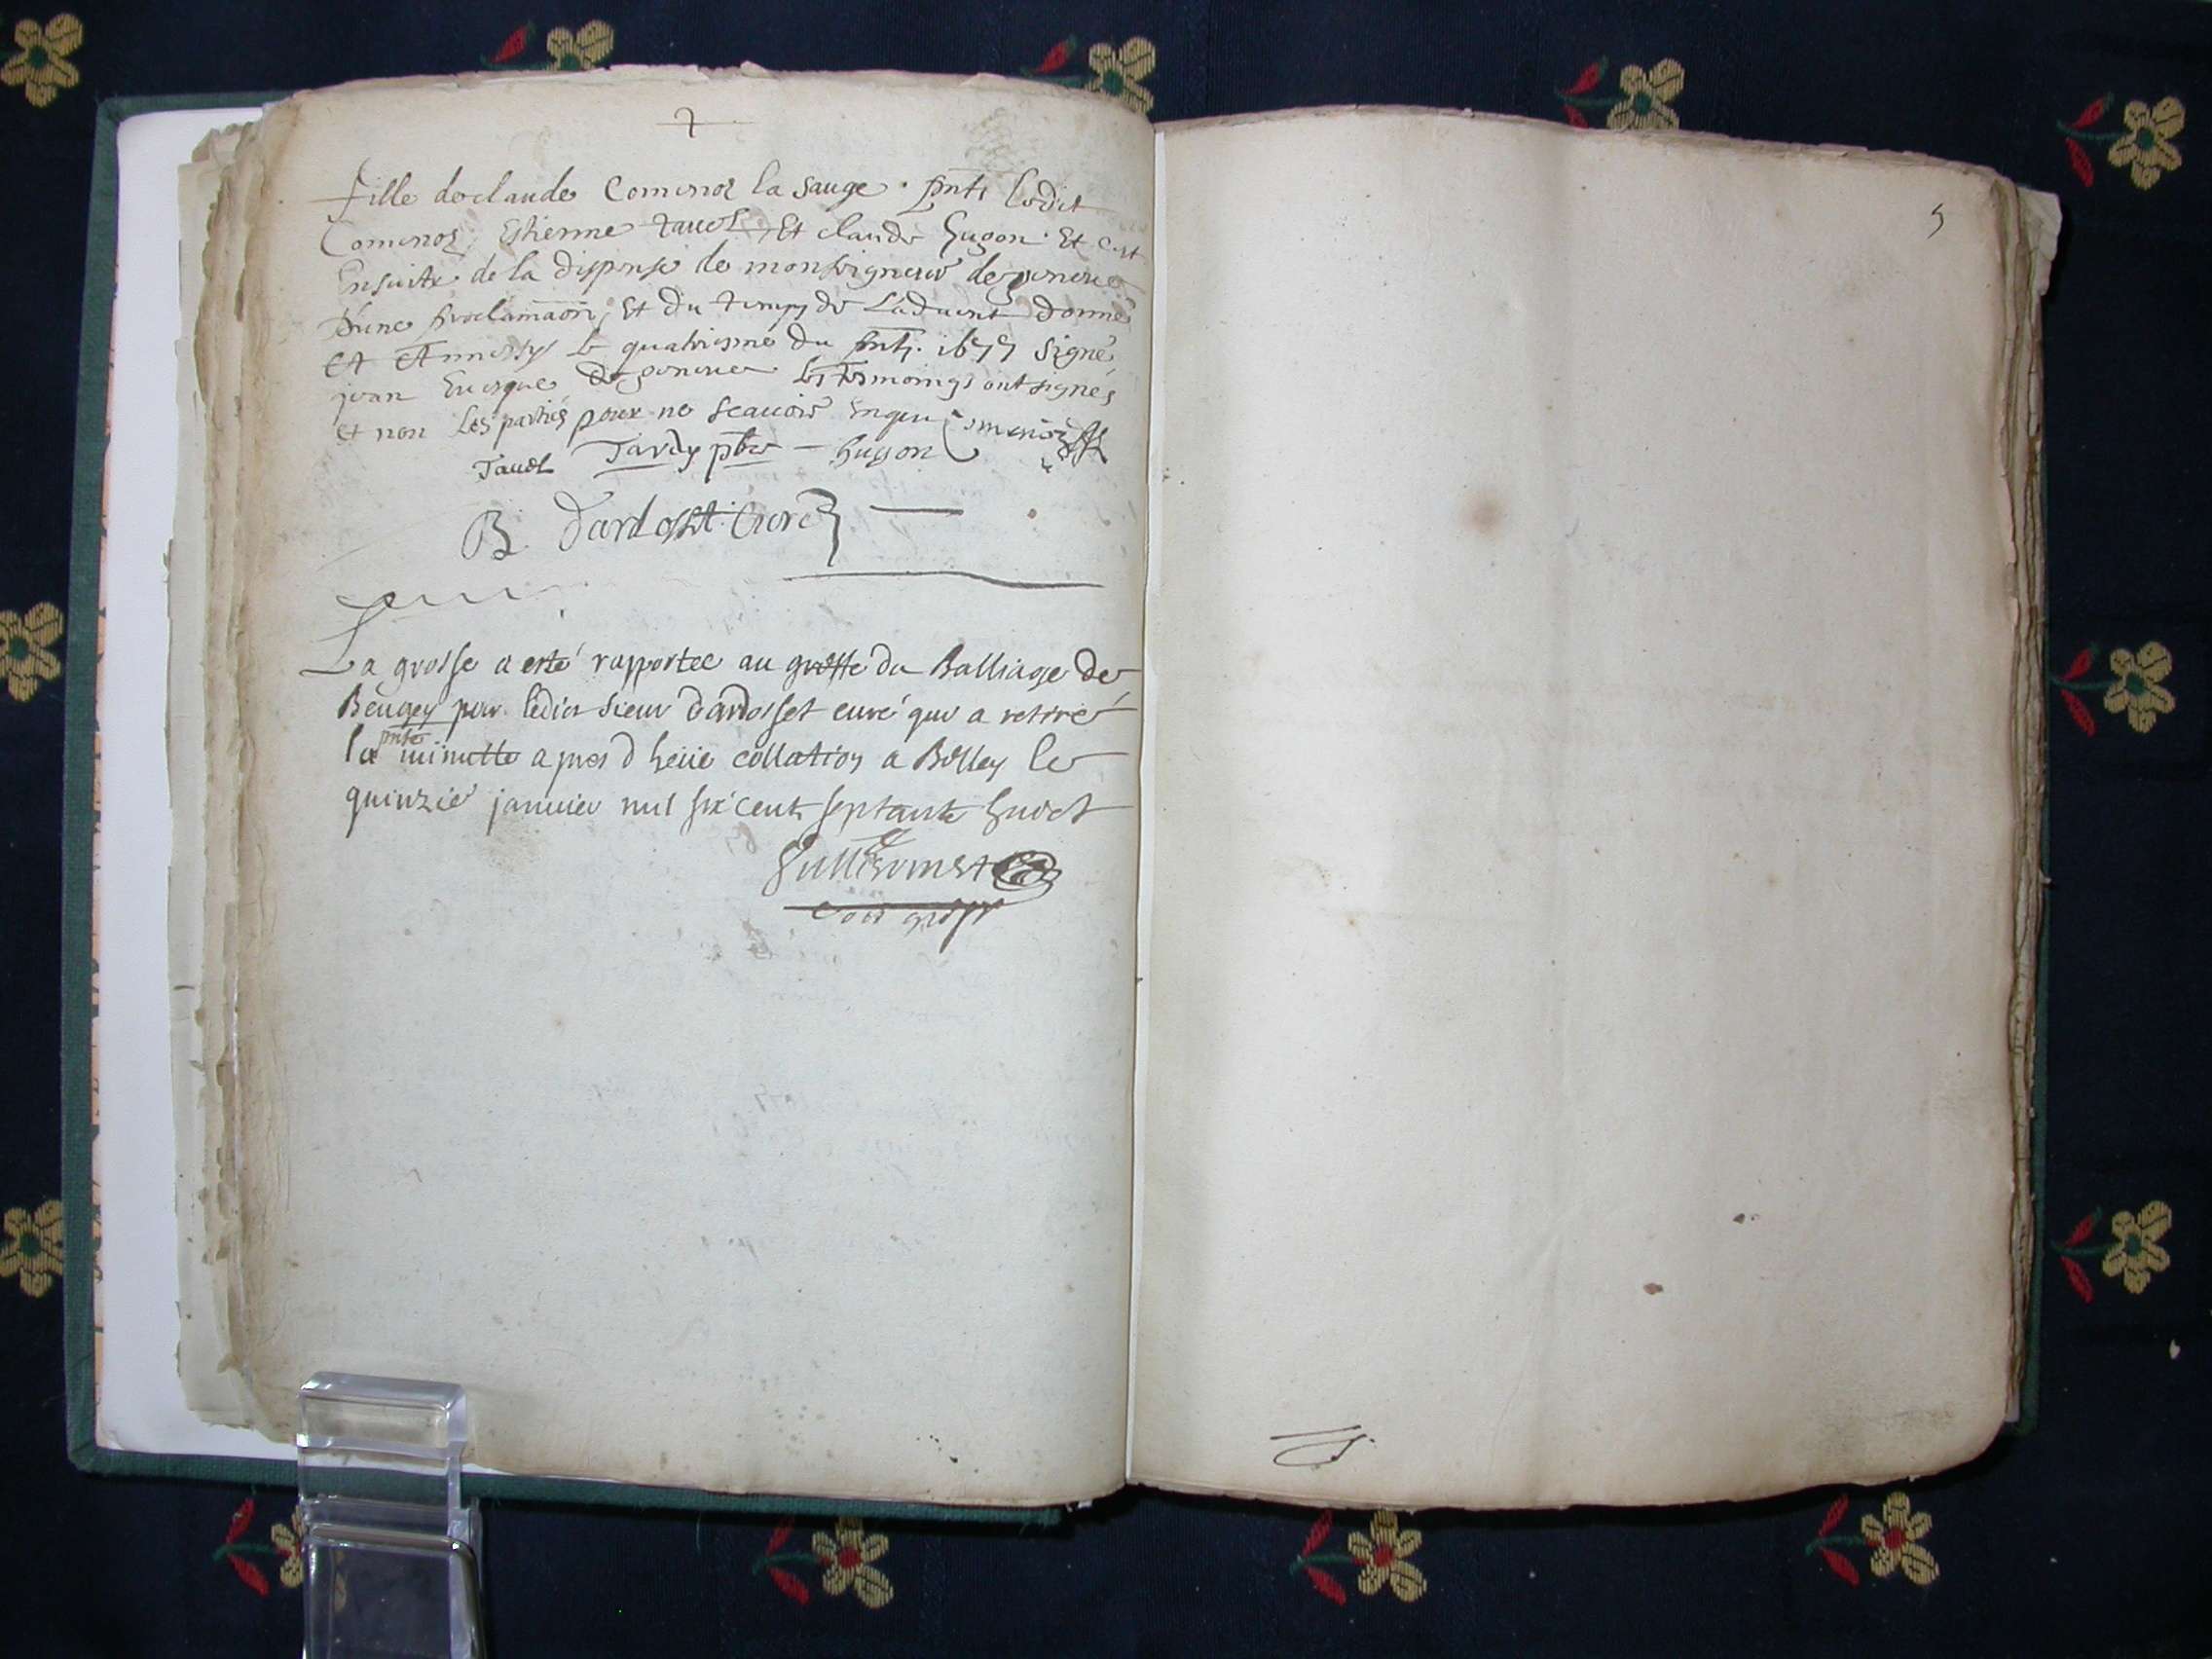 7
fille de claude Comenos la sauge. pnts ledict
Comenos, Estienne tavel, Et claude hugon. Et c'est
Ensuitte de la dispense de monseigneur de geneve
d'une proclamaon, Et du temps de L'aduent donné
Annessy le quatriesme du pnt. 1677 signé
jean Euesque de geneve les tesmoings ont signés
et non Les parties pour ne scauoir enquis
Tavel Tardy pbre hugon
B. Dardosset Curé
La grosse a esté rapportee au greffe du Balliage de
Beugey par ledict sieur dardosset curé qui a retiré
la pnte minutte apres dheüe collation a Belley le
quinzie janvier mil six cent septante huict
5